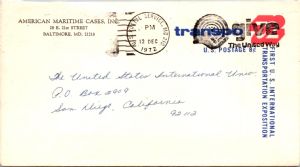 AMERICAN MARITIME CASES, INC.
28 E. 21st STREET
BALTIMORE, MD. 21218
U.S. POSTAL SERVICE MD 210
PM
12 DEC
1972
give
The United Way
transpo
U.S. POSTAGE 8c
FIRST U.S. INTERNATIONAL
TRANSPORTATION EXPOSITION
The United States International Univ
P.O. Box 2909
San Diego, California
92112